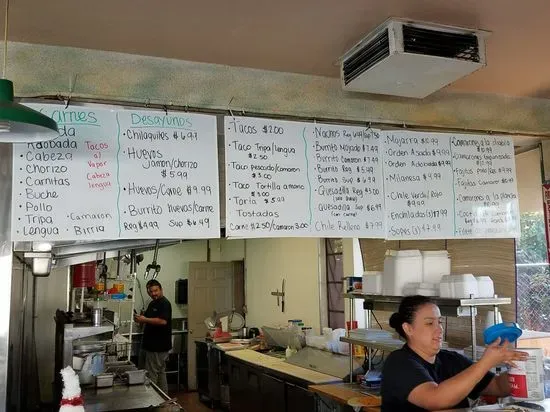 Carnes
Asada
Adobada
• Cabeza
• Chorizo
• Carnitas
• Buche
• Pollo
• Tripa
• Lengua
Tacos
al
Vapor
Cabeza
lengua
• Camaron
• Birria
Desayunos
• Chilaquiles $6.99
• Huevos
Jamon/chorizo
$5.99
• Huevos/Carne $9.99
• Burrito huevos/carne
Reg $4.99 Sup $6.49
Tacos $2.00
Taco Tripa/lengua
$2.50
Taco Pescado/camaron
$3.00
Taco Tortilla a mano
$3.00
Torta $5.99
Tostadas
Carne $2.50/Camaron 3.00
Nachos Reg
Burrito Mojado $7.99
Burrito Camaron $7.99
Burrito Reg $5.99
Burrito Sup $6.99
Quesadilla Reg $3.00
Quesadilla Sup $6.99
(con carne)
Chile Relleno $7.99
• Mojarra $10.99
• Orden Asada $9.99
• Orden Adobada $9.99
• Milanesa $9.99
• Chile Verde/Rojo
$9.99
• Enchiladas (3) $7.99
• Sopes (3) $7.99
• Camarones a la diabla
• Camarones
• Fajitas Pollo Res $9.99
• Fajitas Camaron